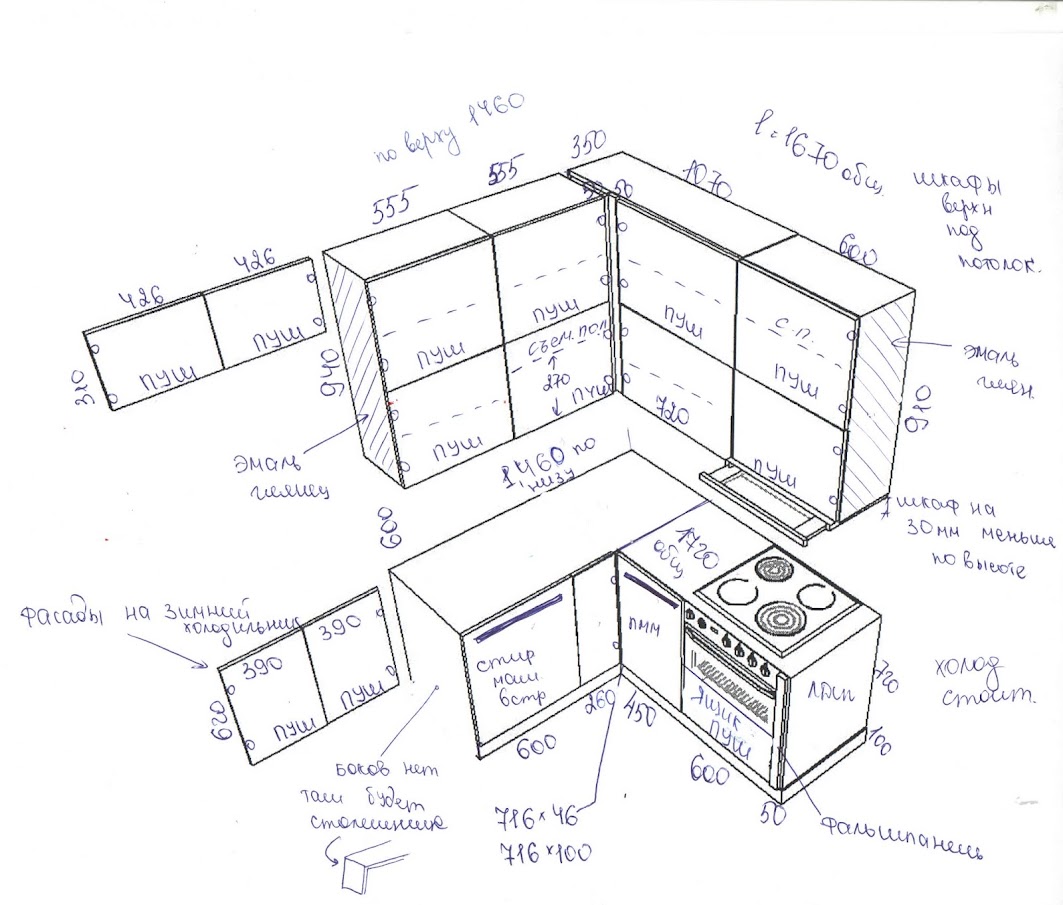 по верху 1460
l = 1670 общ.
350
555
555
50 50
1070
600
шкафы
верхн
под
потолок.
426
426
ПУШ
ПУШ
310
940
ПУШ
ПУШ
ПУШ
С.П.
ПУШ
съем.пол.
270
ПУШ
ПУШ
720
ПУШ
910
эмаль
глян.
эмаль
глянец
1460 по
низу
шкаф на
30мм меньше
по высоте
600
1720
общ
фасады на зимний
холодильник
390
390
ПУШ
ПУШ
620
стир
маш.
встр
ПММ
Ящик
ПУШ
ЛДСП
720
100
холод
стоит.
260
450
600
600
50
боков нет
там будет
столешница
716×46
716×100
фальшпанель